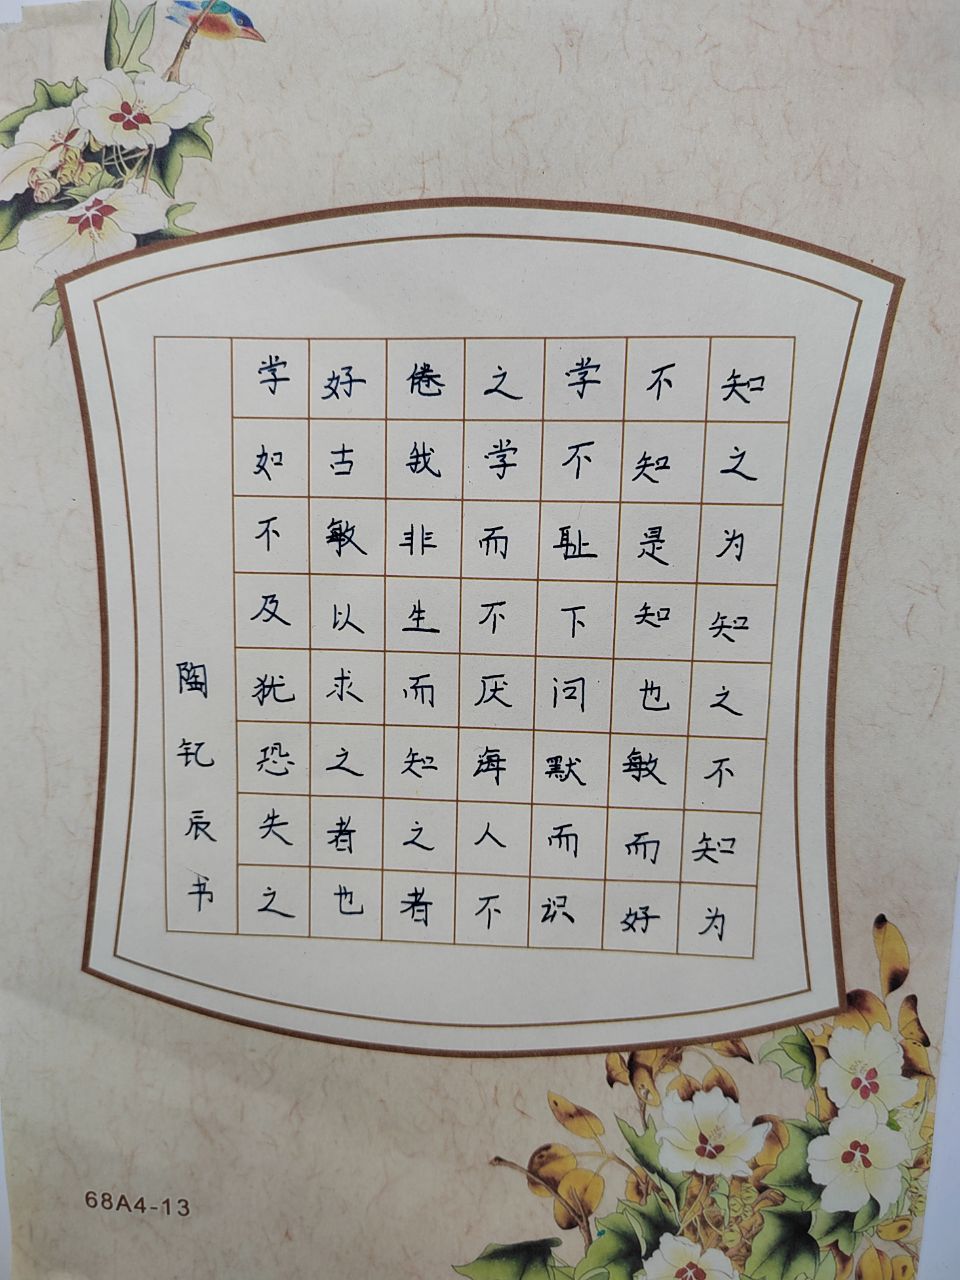 知之为知之不知为
不知是知也敏而好
学不耻下问默而识
之学而不厌海人不
倦我非生而知之者
好古敏以求之者也
学如不及犹恐失之
陶钇辰书
68A4-13